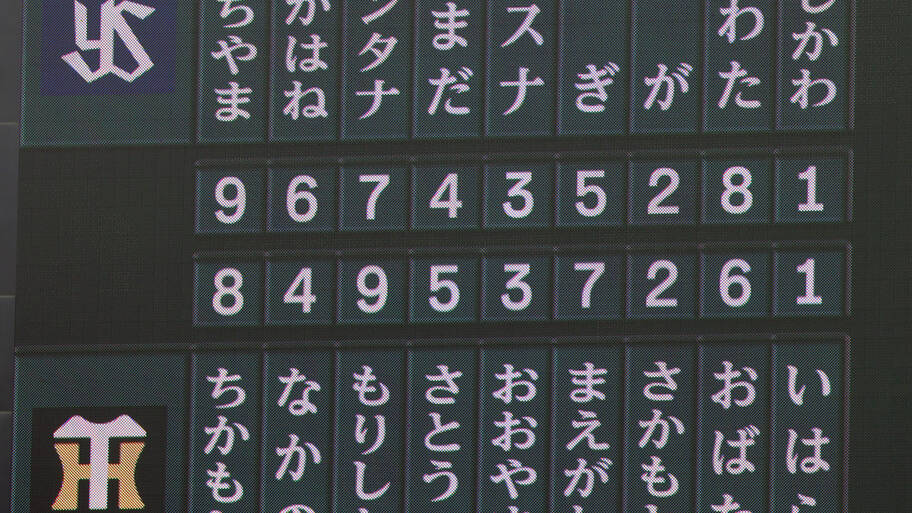 YS
ちやま
かはね
ンタナ
まだ
スナ
ぎ
が
わた
しかわ
9 6 7 4 3 5 2 8 1
8 4 9 5 3 7 2 6 1
TH
ちかも
なかの
もりし
さとう
おおや
まえが
さかも
おばた
いはら